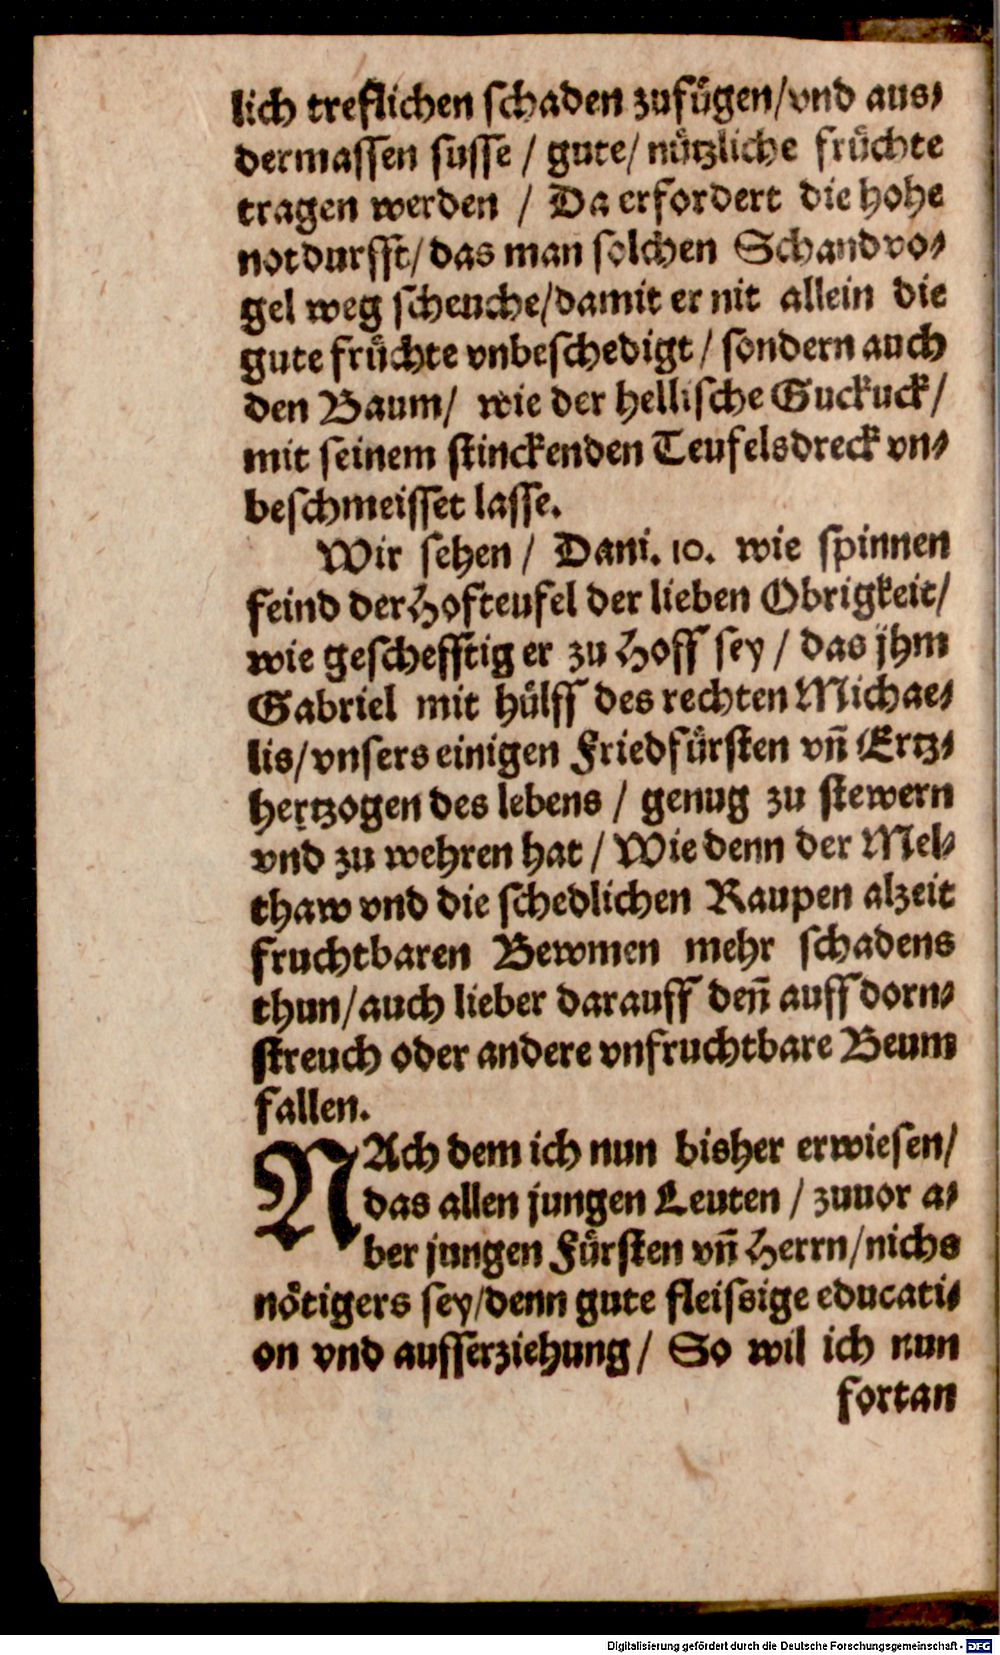 lich treflichen schaden zufuͤgen/vnd aus⸗
dermassen susse / gute/ nuͤtzliche fruͤchte
tragen werden / Da erfordert die hohe
notdurfft/ das man solchen Schandvo⸗
gel weg scheuche/damit er nit allein die
gute fruͤchte vnbeschedigt / sondern auch
den Baum/ wie der hellische Guckuck/
mit seinem stinckenden Teufelsdreck vn⸗
beschmeisset lasse.
Wir sehen / Dani. 10. wie spinnen
feind der Hofteufel der lieben Obrigkeit/
wie geschefftig er zu Hoff sey / das jhm
Gabriel mit huͤlff des rechten Michae⸗
lis/ vnsers einigen Friedfuͤrsten vn̄ Ertz⸗
hertzogen des lebens / genug zu stewern
vnd zu wehren hat / Wie denn der Mel⸗
thaw vnd die schedlichen Raupen alzeit
fruchtbaren Bewmen mehr schadens
thun/ auch lieber darauff den̄ auff dorn⸗
streuch oder andere vnfruchtbare Beum
fallen.
NAch dem ich nun bisher erwiesen/
das allen jungen Leuten / zuuor a⸗
ber jungen Fuͤrsten vn̄ Herrn/nichs
noͤtigers sey/denn gute fleissige educati⸗
on vnd aufferziehung/ So wil ich nun
fortan
Digitalisierung gefördert durch die Deutsche Forschungsgemeinschaft - DFG